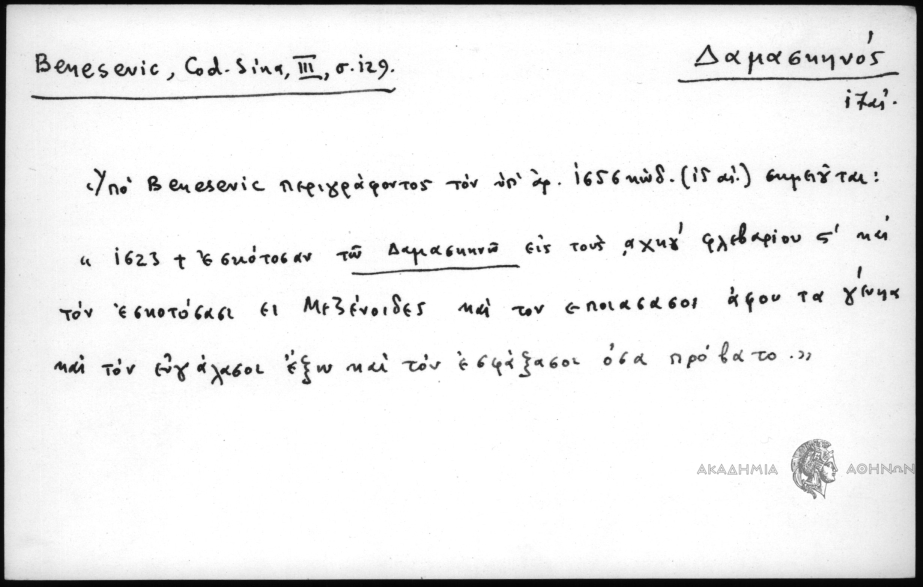 Benesevic, Cod. Sina, III, σ. 129.
Δαμασκηνός
17 αἰ.
«Ὑπό Benesevic περιγράφοντος τόν ὑπ' ἀρ. 1656 κώδ. (15 αἰ.) σημειοῦται:
" 1623 + Ἐσκότοσαν τῶ Δαμασκηνῶ εἰς τους ͵αχκγ' φλεβαρίου ς' καί
τόν ἐσκοτόσασι ει Μεζένοιδες καὶ τον εποιασασοι ἀφου τα γένηα
καὶ τόν εὐγάλασοι ἔξω καὶ τόν ἐσφάξασοι ὀσα πρόβατο.»
ΑΚΑΔΗΜΙΑ ΑΘΗΝΩΝ